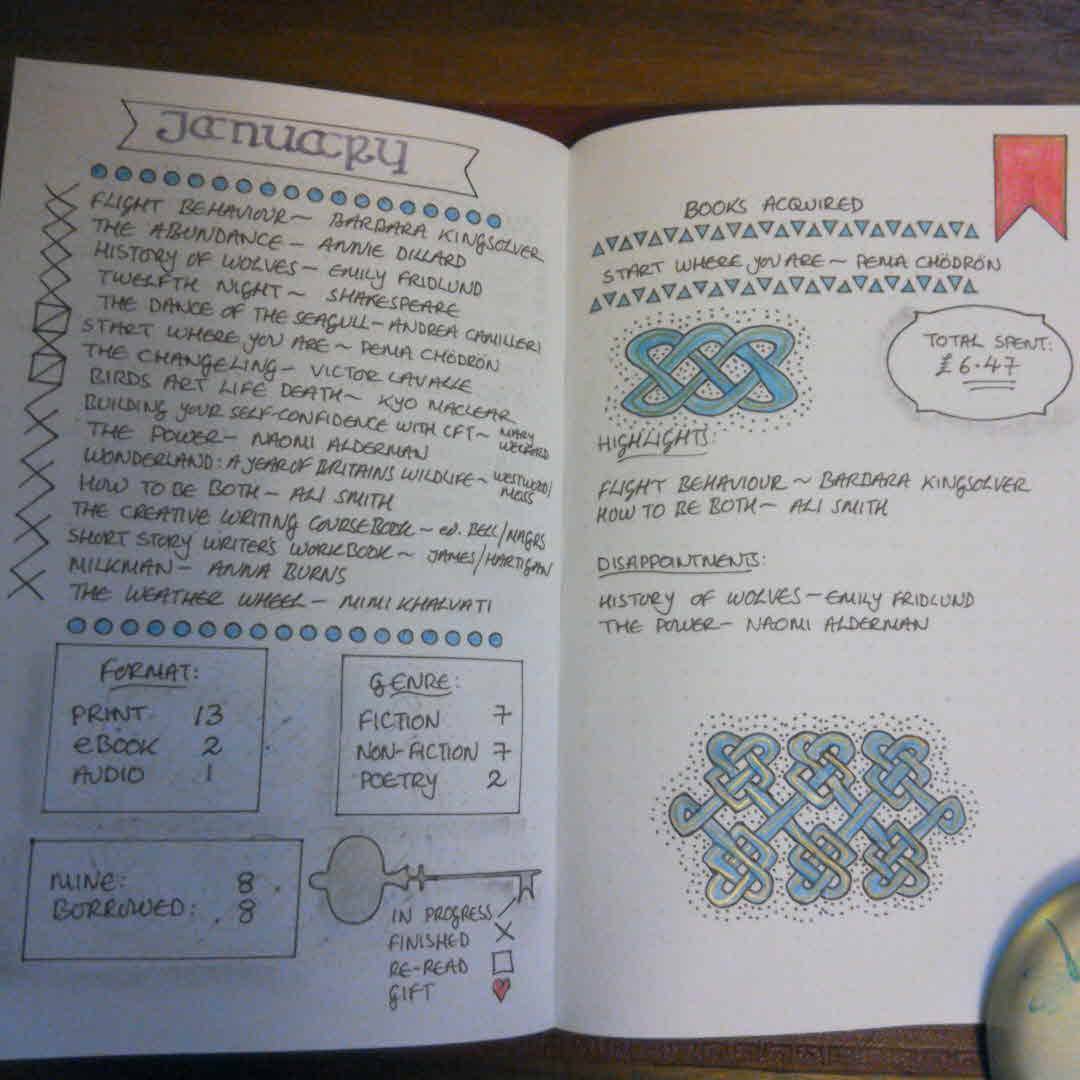 JANUARY
FLIGHT BEHAVIOUR ~ BARBARA KINGSOLVER
THE ABUNDANCE - ANNIE DILLARD
HISTORY OF WOLVES - EMILY FRIDLUND
TWELFTH NIGHT ~ SHAKESPEARE
THE DANCE OF THE SEAGULL - ANDREA CAMILLERI
START WHERE YOU ARE ~ PEMA CHÖDRÖN
THE CHANGELING - VICTOR LAVALLE
BIRDS ART LIFE DEATH ~ KYO MACLEAR
BUILDING YOUR SELF-CONFIDENCE WITH CFT ~ MARY WELFORD
THE POWER - NAOMI ALDERMAN
WONDERLAND: A YEAR OF BRITAINS WILDLIFE ~ WESTWOOD/MOSS
HOW TO BE BOTH - ALI SMITH
THE CREATIVE WRITING COURSEBOOK ~ ED. BELL/MAGRS
SHORT STORY WRITER'S WORKBOOK ~ JAMES/HARTIGAN
MILKMAN - ANNA BURNS
THE WEATHER WHEEL - MIMI KHALVATI
FORMAT:
PRINT 13
eBOOK 2
AUDIO 1
GENRE:
FICTION 7
NON-FICTION 7
POETRY 2
MINE: 8
BORROWED: 8
IN PROGRESS
FINISHED
RE-READ
GIFT
BOOKS ACQUIRED
START WHERE YOU ARE ~ PEMA CHÖDRÖN
TOTAL SPENT:
£6.47
HIGHLIGHTS:
FLIGHT BEHAVIOUR ~ BARBARA KINGSOLVER
HOW TO BE BOTH ~ ALI SMITH
DISAPPOINTMENTS:
HISTORY OF WOLVES - EMILY FRIDLUND
THE POWER - NAOMI ALDERMAN